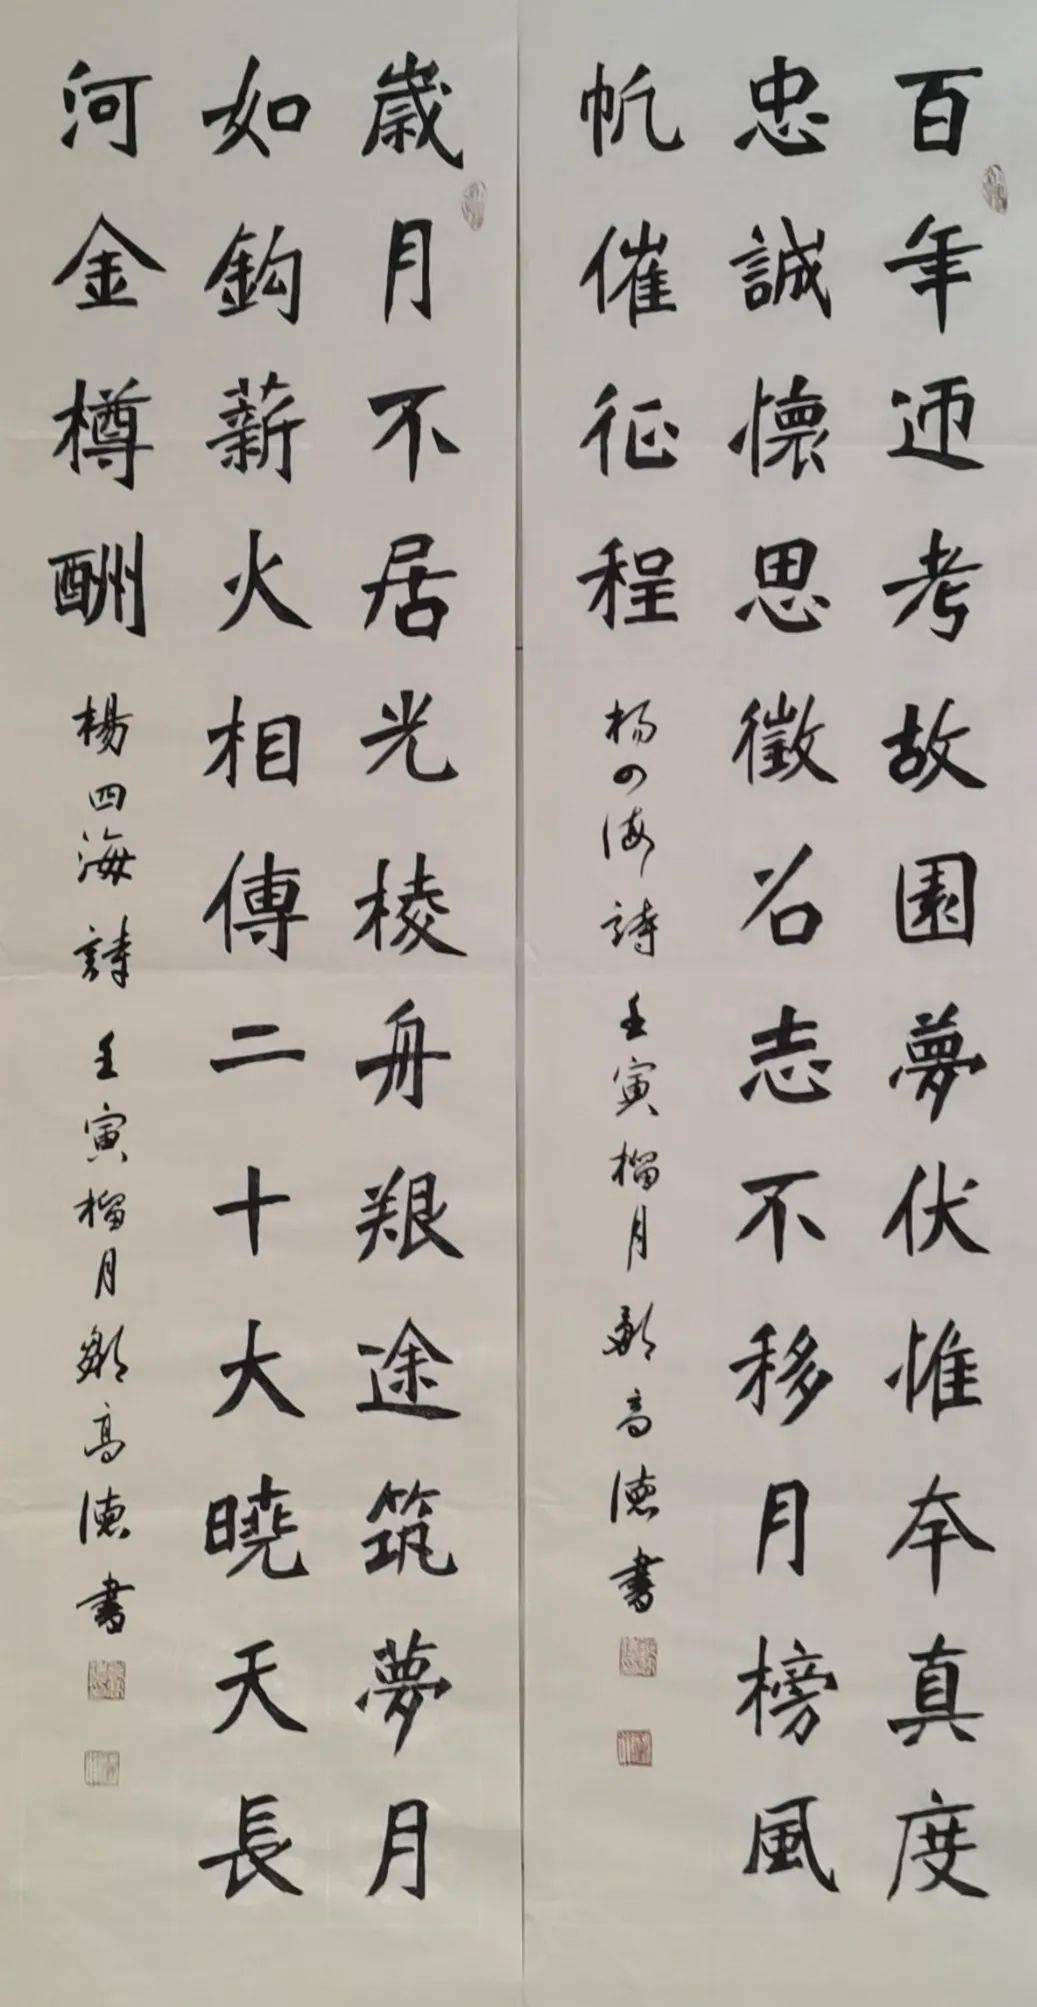 百年迊考故園夢伏惟夲真度
忠誠懷思徵召志不移月榜風
帆催征程 楊四海詩 壬寅榴月 高德書
歲月不居光棱舟艱途筑夢月
如鈎薪火相傳二十大曉天長
河金樽酬 楊四海詩 壬寅榴月 高德書